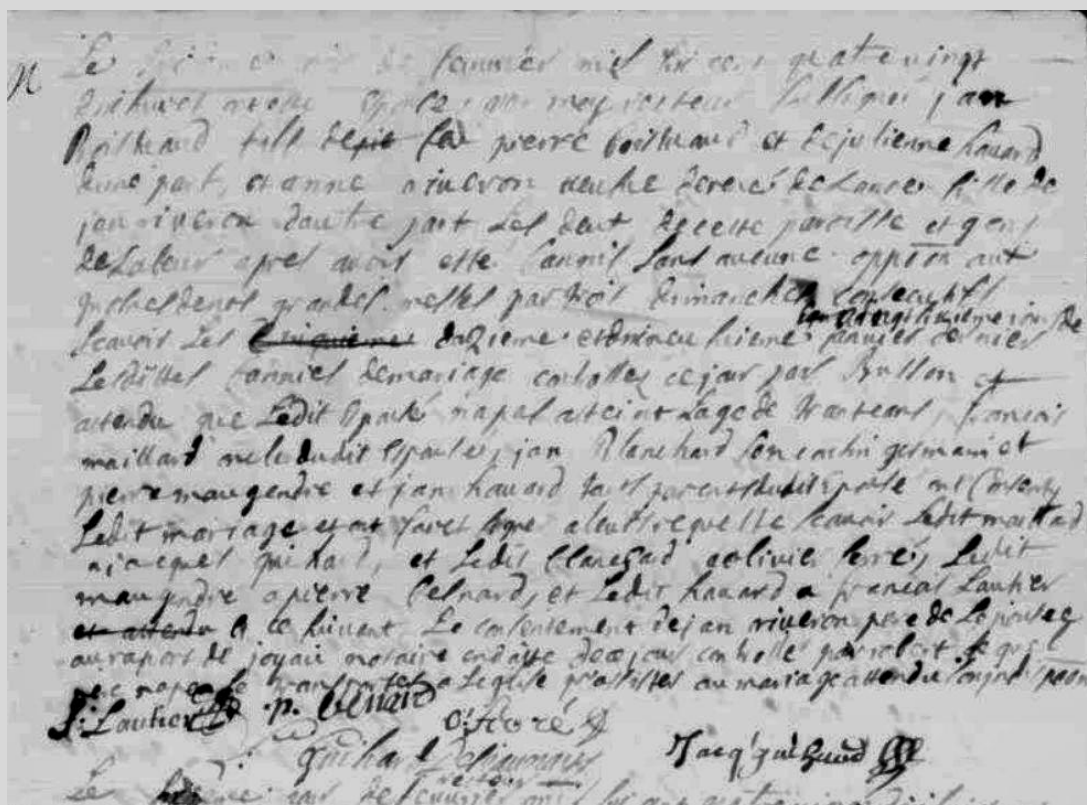 Le jour de feuvrier mil six cent quatre vingt
dixhuict espouse par moy recteur soussigné jan
Boilheaud fils de feu pierre boilheaud et de julienne hauard
dune part, et anne riueron veufve de René de Launé fille de
jan riueron dautre part Les deux de cette paroisse et gens
de Labeur apres avoir esté bannis sans aucune oppōn aux
prosnes de nos grandes messes par trois dimanches consecutifs
scavoir Les douzieme et dixneufvieme janvier dernier
vingt sixieme jour de
Les dittes bannies de mariage controllés ce jour par Bullon et
attendu que Ledit Espousé napas atteint Lage de trante ans, francois
maillard oncle dudit Espousé, jan Blanchard son cousin germain et
pierre maugendre et jan hauard parents dudit Espousé ont consenty
Ledit mariage et ont faict signer a leurs requeste scavoir Ledit maillard
a jacques guihard, et Ledit blanchard a olivier ferré, Ledit
maugendre a pierre besnard, et Ledit hauard a francois Lautier
et attendu et ce suivant Le consentement de jan riveron pere de Lepousee
au raport de joyau notaire en datte de ce jour controllé par robert
transporter a Leglise passister au mariage attendu
f: Lautier p. besnard
O: feré
Guihard
Jacq guihard
Le jour de feuvrier mil six cent quatre vingt dixhuit